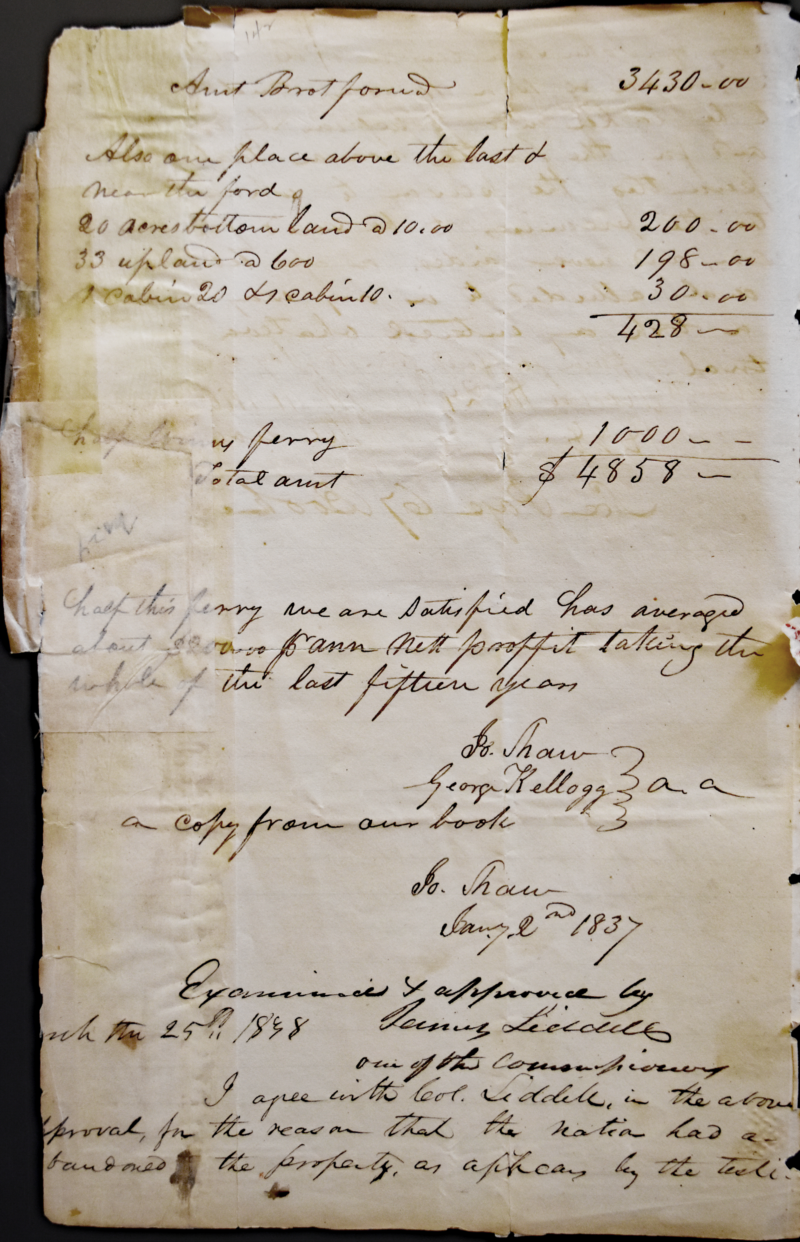 Amt Brot forwd 3430-00
Also one place above the last &
near the ford
20 acres bottom land @ 10.00 200-00
33 upland @ 600 198-00
1 cabin 20 & 1 cabin 10. 30-00
428-
half ferry 1000--
Total amt $4858-
half this ferry we are satisfied has averaged
about pr ann nett proffit taking the
whole of the last fifteen years
Jo. Shaw
George Kellogg } a. a
a copy from our book
Jo. Shaw
Jany. 2nd 1837
Examined & approved by
the 25th 1838 James Liddell
one of the commissioners
I agree with Col. Liddell, in the above
pproval, for the reason that the nation had a-
bandoned the property, as appears by the testi-